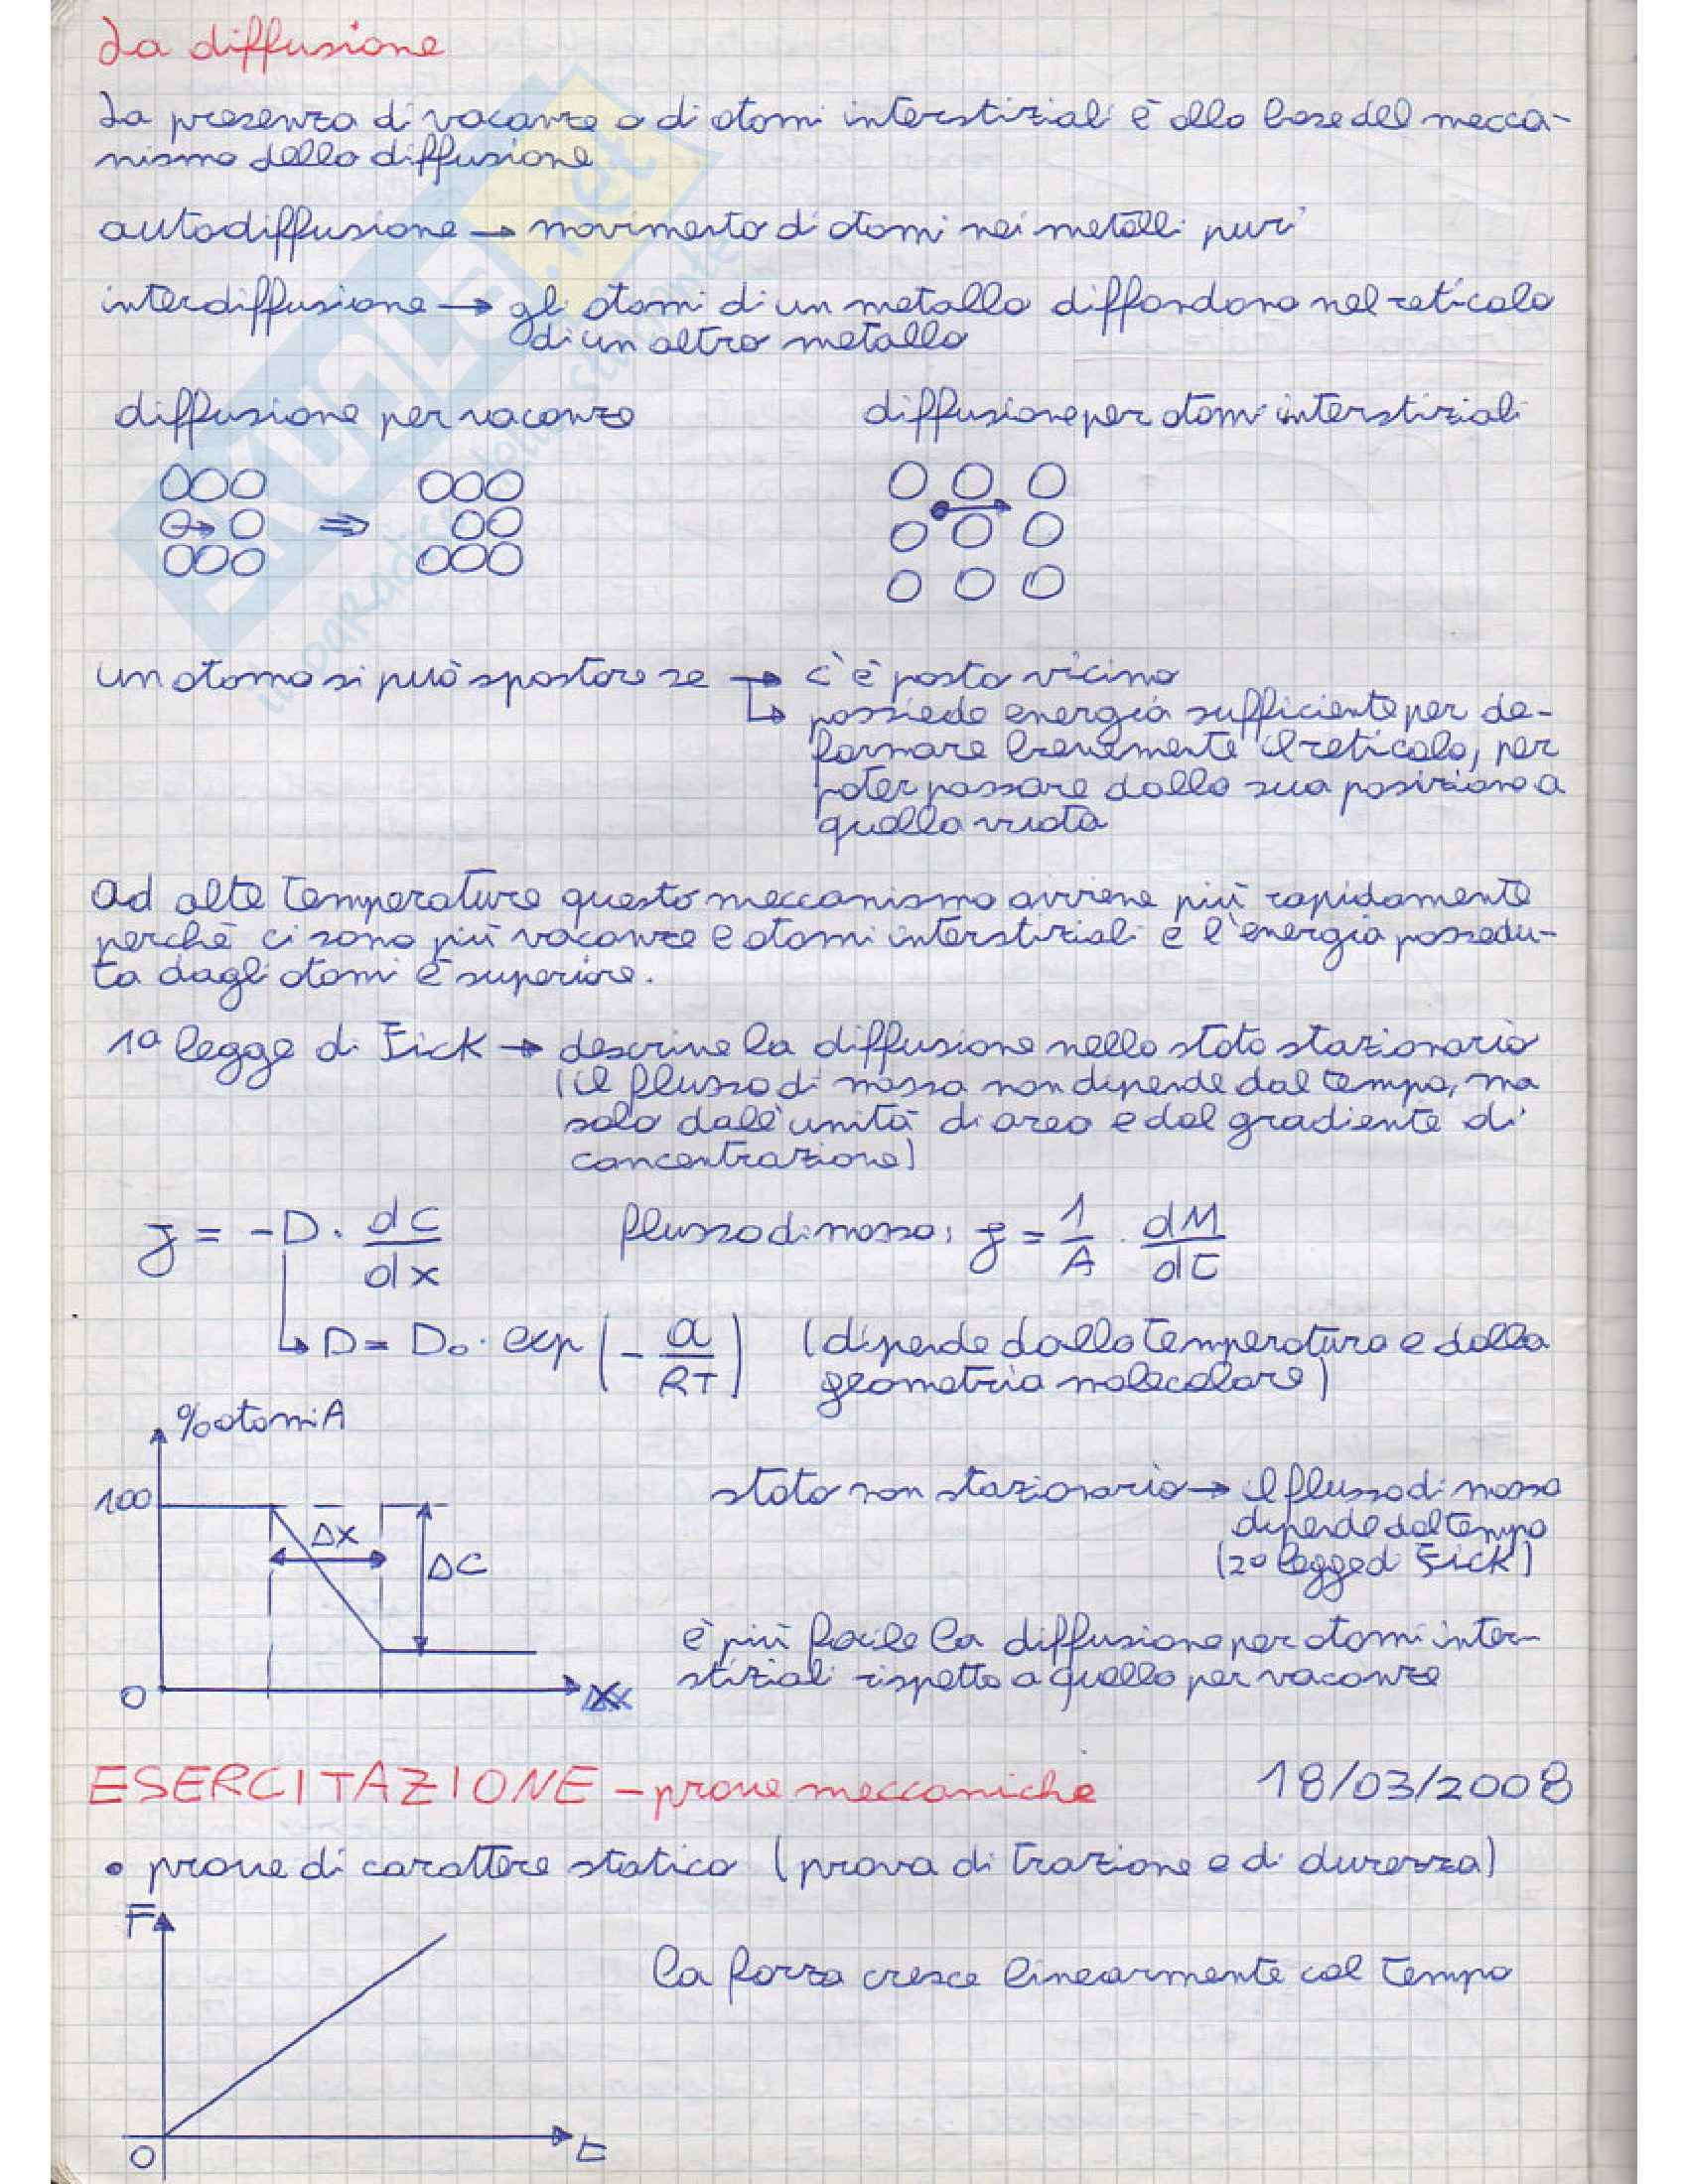 La diffusione
La presenza di vacanze o di atomi interstiziali è alla base del mecca-
nismo della diffusione
autodiffusione → movimento di atomi nei metalli puri
interdiffusione → gli atomi di un metallo diffondono nel reticolo
di un altro metallo
diffusione per vacanze
diffusione per atomi interstiziali
un atomo si può spostare se → c'è posto vicino
↳ possiede energia sufficiente per de-
formare brevemente il reticolo, per
poter passare dalla sua posizione a
quella vuota
Ad alte temperature questo meccanismo avviene più rapidamente
perchè ci sono più vacanze e atomi interstiziali e l'energia possedu-
ta dagli atomi è superiore.
1ª legge di Fick → descrive la diffusione nello stato stazionario
(il flusso di massa non dipende dal tempo, ma
solo dall'unità di area e dal gradiente di
concentrazione)
J = -D · dC/dx
flusso di massa: J = 1/A · dM/dt
↳ D = D₀ · exp(- Q/RT) (dipende dalla temperatura e dalla
geometria molecolare)
% atomi A
100
Δx
ΔC
0
x
stato non stazionario → il flusso di massa
dipende dal tempo
(2ª legge di Fick)
è più facile la diffusione per atomi inter-
stiziali rispetto a quella per vacanze
ESERCITAZIONE - prove meccaniche 18/03/2008
• prove di carattere statico (prova di trazione e di durezza)
F
la forza cresce linearmente col tempo
0
t
SKUOLA.net